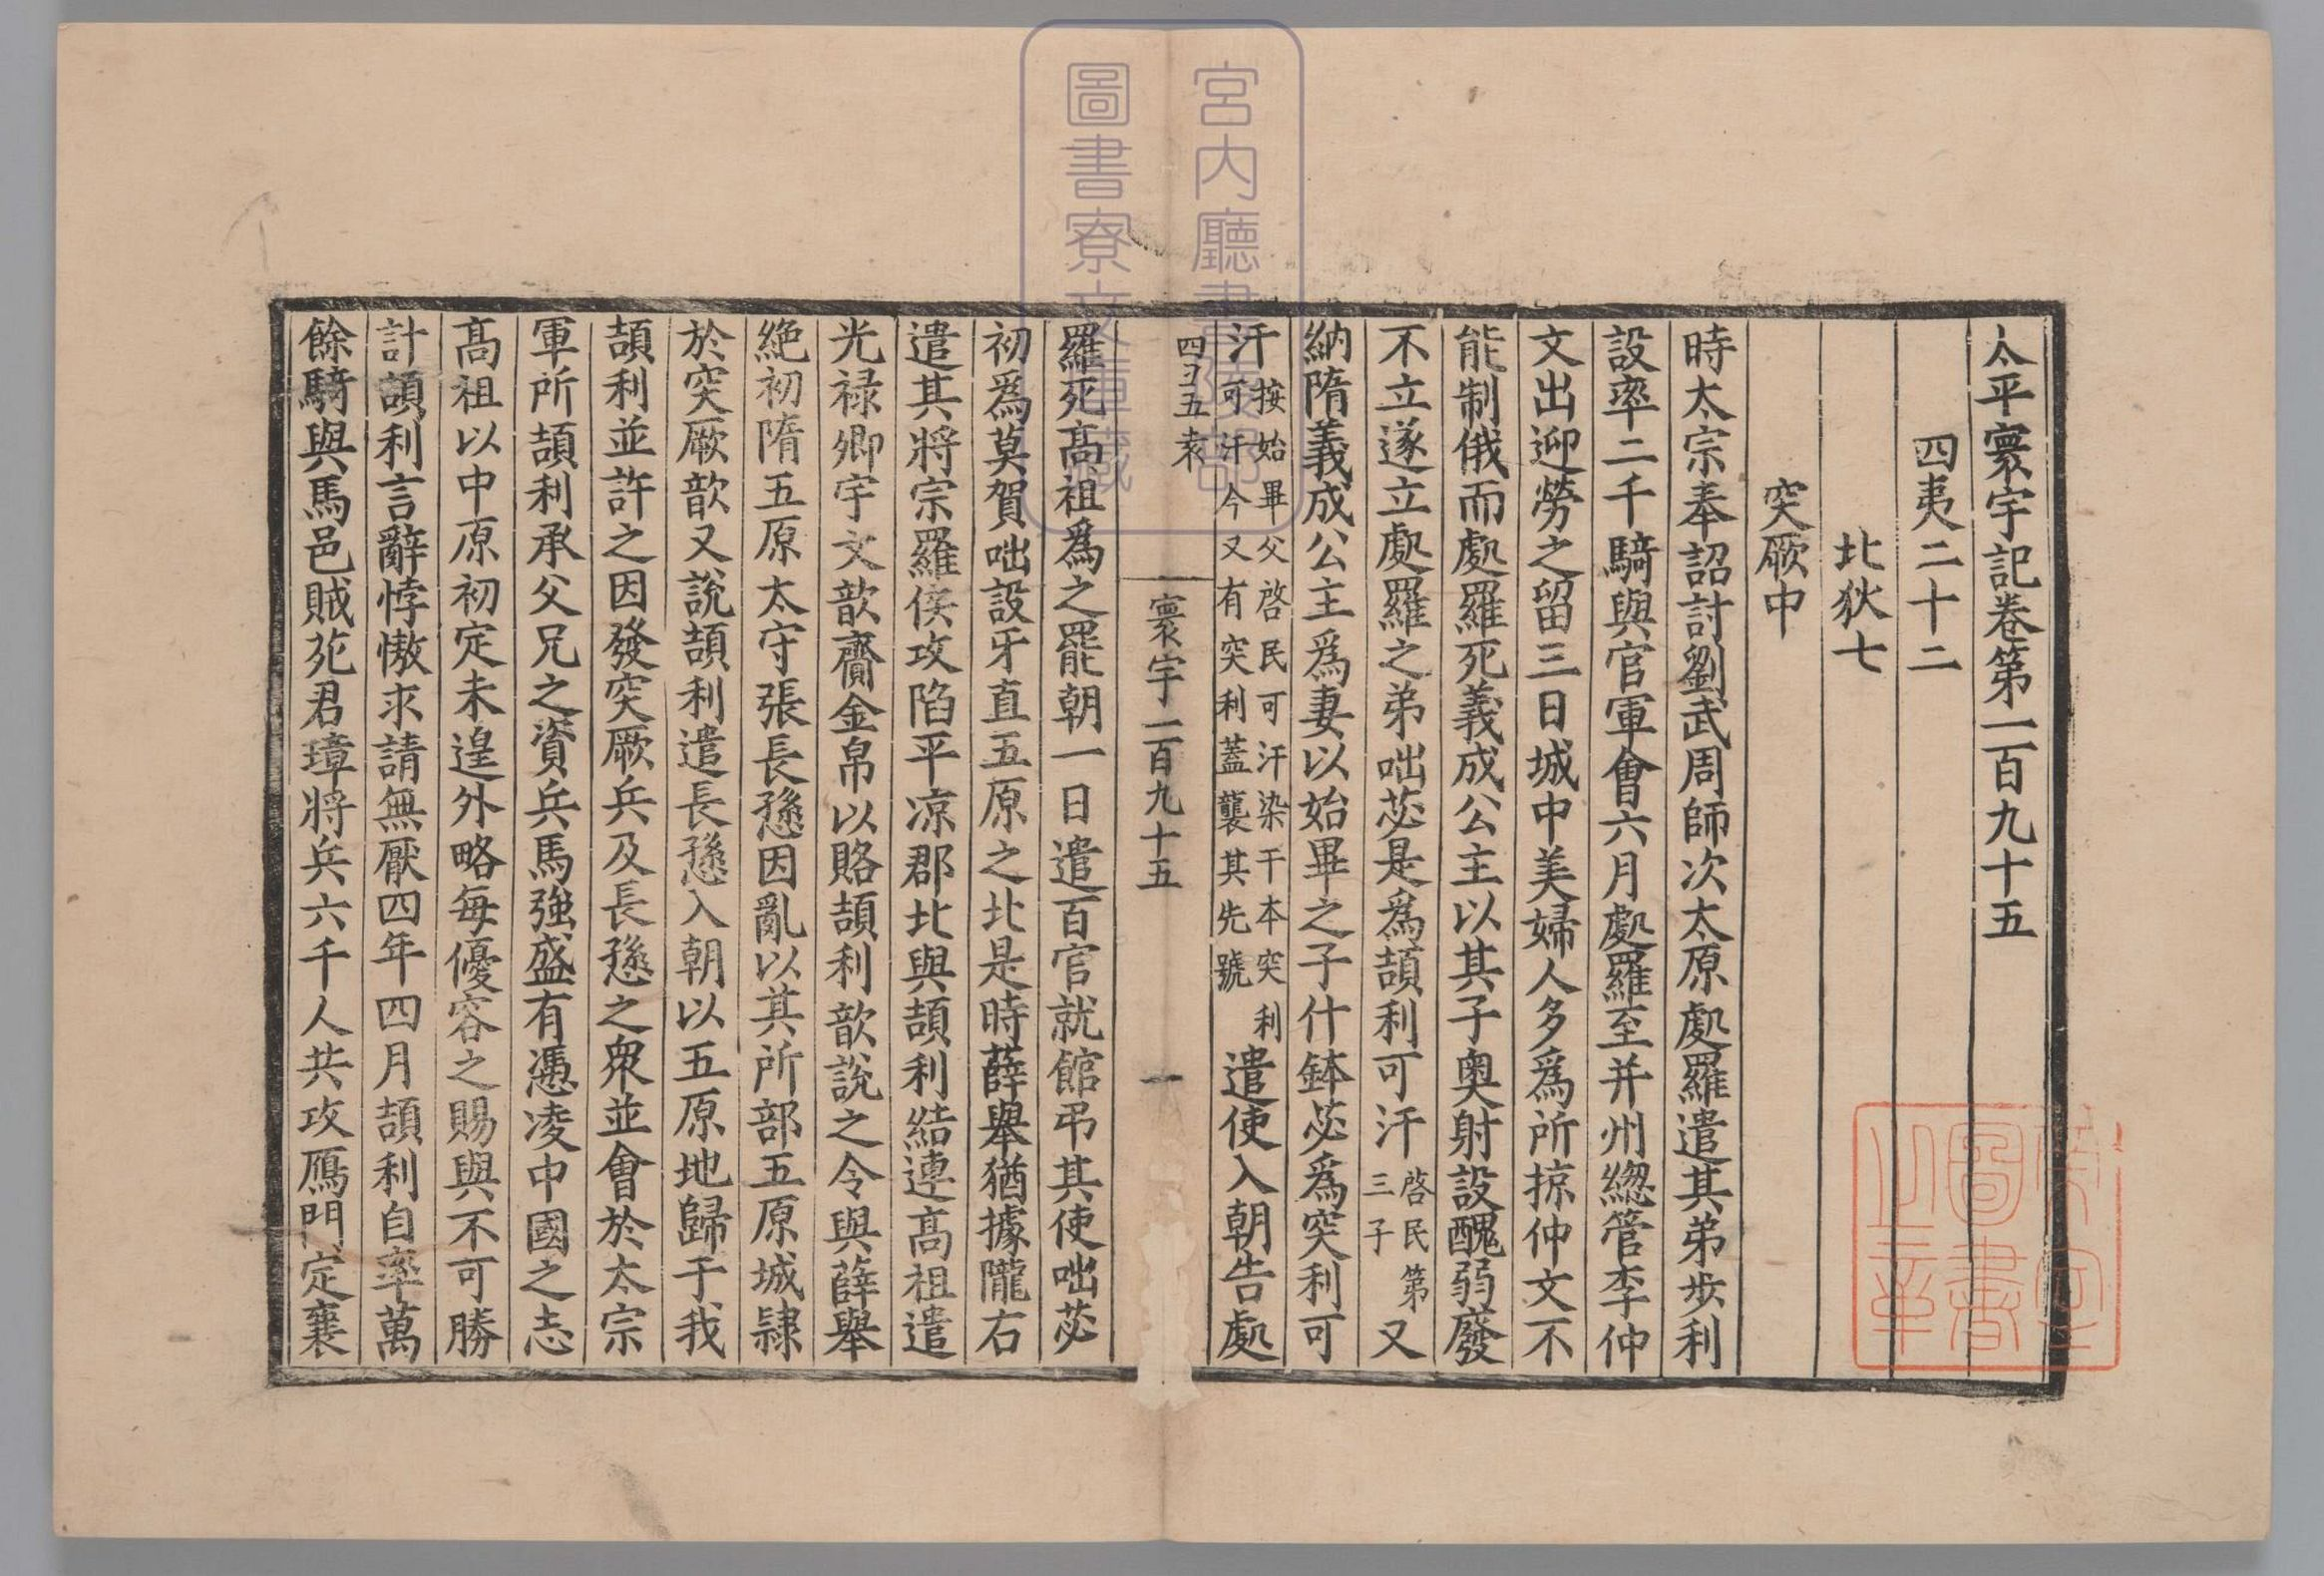 太平寰宇記卷第一百九十五
四夷二十二
北狄七
突厥中
時太宗奉詔討劉武周師次太原處羅遣其弟步利
設率二千騎與官軍會六月處羅至并州緫管李仲
文出迎勞之留三日城中美婦人多爲所掠仲文不
能制俄而處羅死義成公主以其子奧射設醜弱廢
不立遂立處羅之弟咄苾是爲頡利可汗啓民第三子又
納隋義成公主爲妻以始畢之子什鉢苾爲突利可
汗按始畢父啓民可汗染干本突利可汗今又有突利蓋襲其先號遣使入朝告處
寰宇一百九十五
一
羅死高祖爲之罷朝一日遣百官就館弔其使咄苾
初爲莫賀咄設牙直五原之北是時薛舉猶據隴右
遣其將宗羅侯攻陷平凉郡北與頡利結連高祖遣
光禄卿宇文歆齎金帛以賂頡利歆說之令與薛舉
絶初隋五原太守張長愻因亂以其所部五原城隷
於突厥歆又說頡利遣長愻入朝以五原地歸于我
頡利並許之因發突厥兵及長愻之衆並會於太宗
軍所頡利承父兄之資兵馬強盛有憑凌中國之志
高祖以中原初定未遑外略每優容之賜與不可勝
計頡利言辭悖慠求請無厭四年四月頡利自率萬
餘騎與馬邑賊苑君璋將兵六千人共攻鴈門定襄
宮內廳書陵部
圖書寮文庫藏